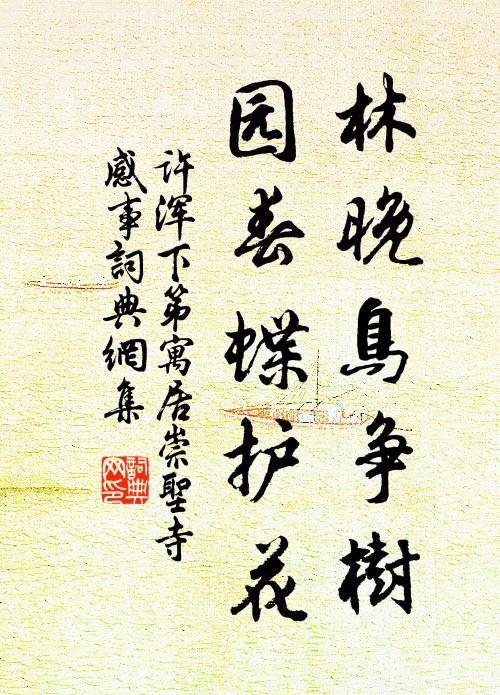 林晚鳥争樹
园春蝶护花
许浑下第寓居崇聖寺
感事詞典網集
詞典网印